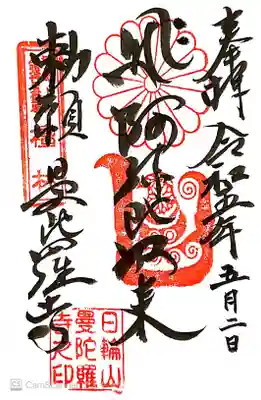 奉拝 令和五年五月二日
阿弥陀如来
勅願 曼陀羅寺
日輪山
曼陀羅
寺之印